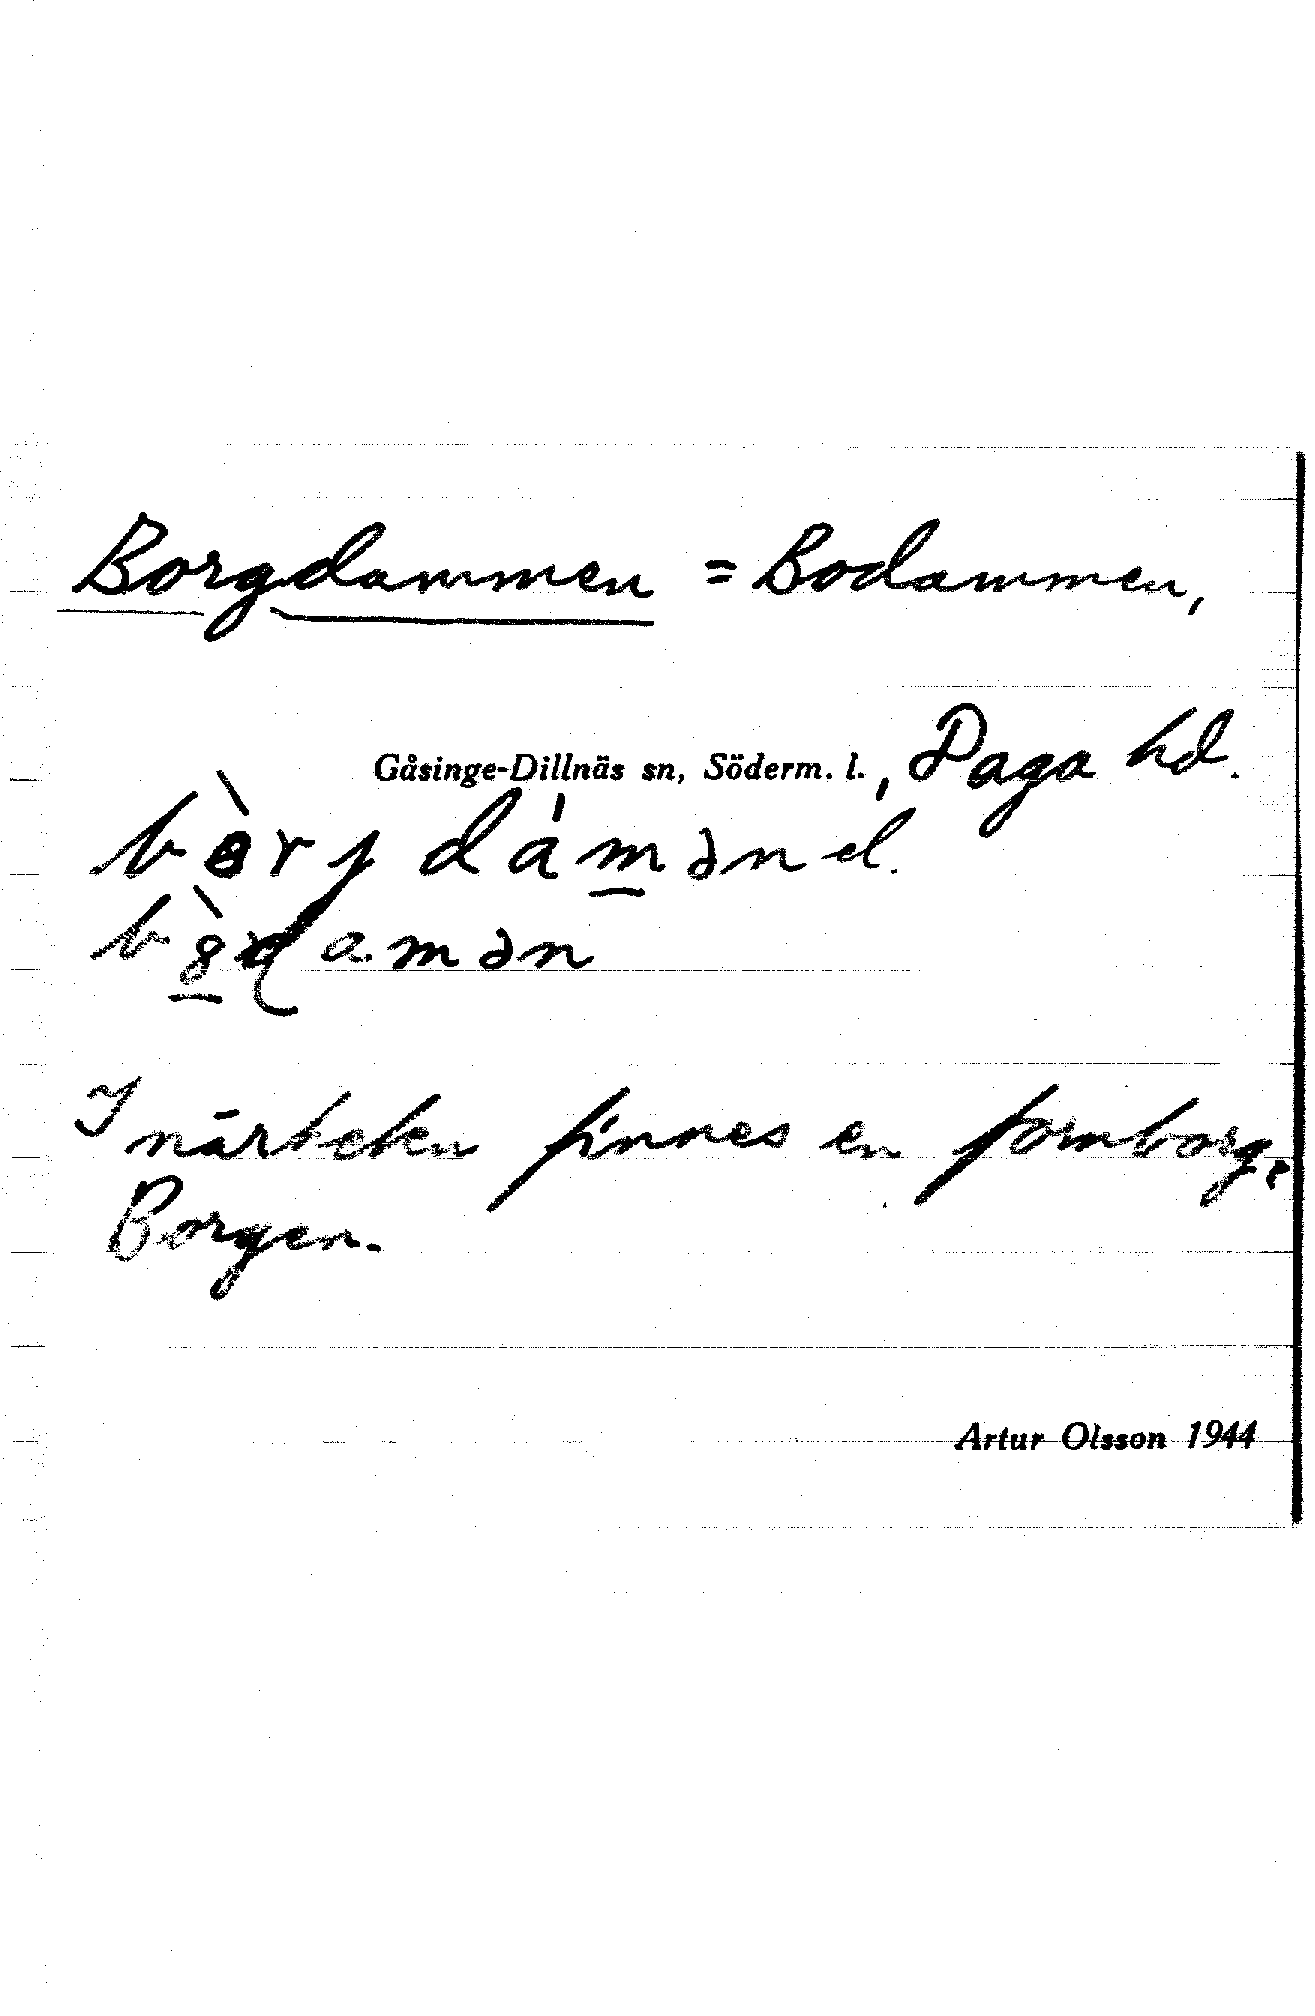 Borgdammen = Bodammen,
Gåsinge-Dillnäs sn, Söderm. l., Daga hd.
I närheten finnes en fornborg,
Borgen.
Artur Olsson 1944